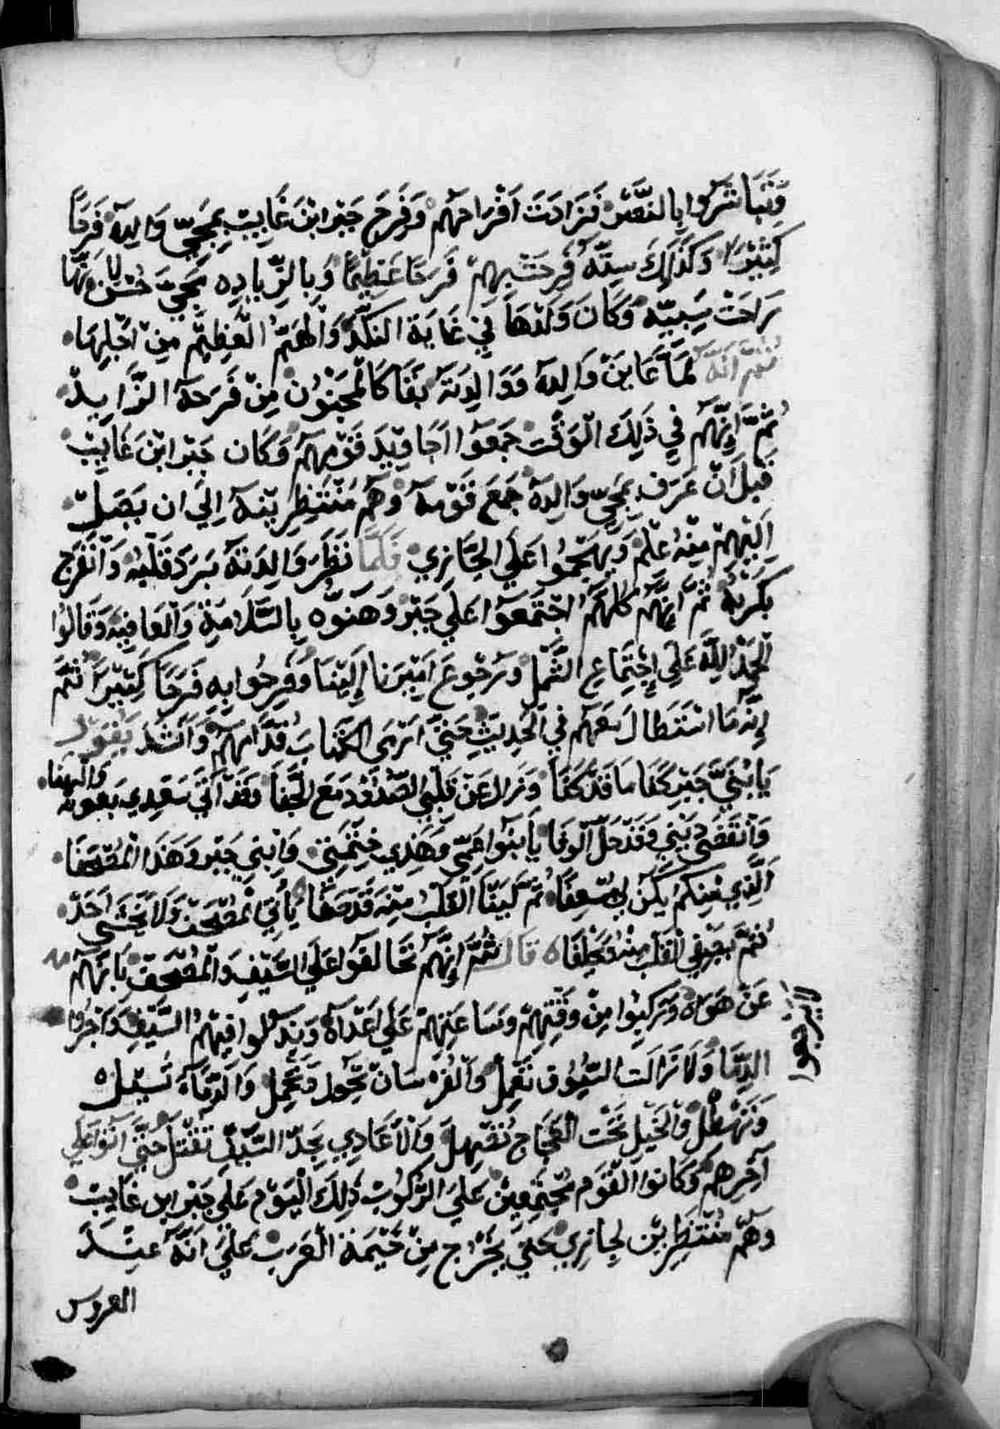 وَتَبَاشَرُوا بِالنَّصْرِ فَزَادَتَ اَفْرَاحَهُم وَفَرِحَ جَبْر ابْنَ غَايِبْ بِمَجِيّ وَالِدِهِ فَرَحًا
كَثِيْرًا وَكَذَلِكَ سِتّهُ فَرِحَتْ بِهِمْ فَرَحًا عَظِيْمًا وَبِالزِّيَادِه بِمَجِيّ لانّهَا
رَاحَتْ سَبِيّه وَكَانَ وَلَدْهَا فِي غَايَة النكَدْ وَالْهَمّ الْعَظِيْم مِنْ اجْلِهَا
ثُمَّ انَهّ لَمَّا عَايَنَ وَالِدهُ وَوَالِدَتَهُ بَقَا كَالْمَجْنُونْ مِنْ فَرَحَهُ الزَّايِدْ
ثُمَّ اِنَّهُمْ فِي ذَلِكَ الْوَقْتْ جَمَعَوا اَجَاقِيْد قَوْمِهِمْ وَكَان جَبْر ابْنَ غَايِبْ
قَبلَ اَنْ عَرَف بِمَجِيّ وَالِدهُ جَمَعَ قَوْمَهُ وَهُم مُنْتَظِرِيْنَهُ اِلَي ان يَصَلْ
اِلَيْهِمْ مِنْهُ عِلْم وَيَهْجِمُوا عَلَي الحَازِي فَلَمَّا نَظَرَ وَالِدَتَهُ بَرَدَ قَلْبُه وَانْفَرَجْ
كَرْبَهُ ثُمَّ انَّهُم كُلَّهُمْ اجْتَمَعَوا عَلَي جَبْر وَهَنوّه بِالسَّلَامَةِ وَالْعَافِيَه وَقَالُوا
الْحَمْدُ لِلّهِ عَلَي اِجْتِمَاعِ الشَّمْلِ وَرَجُوعَ اَمِيْرَنَا اِلَيْنَا وَفَرِحُوا بِهِ فَرَحًا كَثِيْرًا ثُمَّ
اِنَّهُ مَا اسْتَطَالَ مَعَهُم فِي الْحَدِيْثِ حَتَيّ اَرْمَي الكِتَابَ قُدَّامَهُمْ وَاَنْشَد يَقُوَلُ
يَا بْنَيَّ جَبْر كَفَا مَا قَدْ كَفَا وَزَال عَنْ قَلْبِي الصّدُوْد مَعَ الْجَفَا وَقَدْ اَتَي سَعْدِي بَعُوْنه وَالْهنَا
وَانْقَضَي دَيْنِي وَقَدْ حَلَّ الْوَفَا يَا بَنُوا عَمِّي وَهَذِي خَتْمَتِي وَابْنِي جَبْر وَهَذَا الْمُصْحَفَا
الَّذِي مِنْكُمْ يَكُن لِي مُسْعِفًا
ثُمَّ يَجْنِي الْقَلْب مِنْهُ قَالَ ثُمَّ اِنَّهُمْ تَحَالفَوا عَلَي السَّيْفِ وَالْمُصْحَفْ بِاَنَّهُم مَا
يَرْجعوا
عَنْ هَوَاه وَرَكِبُوا مِنْ وَقْتِهِمْ وَسَاعَتِهِمْ عَلَي اَعْدَاهُ وَبَذَلوا فِيْهُم السَّيْف وَاجْرُوا
الدِّمَا وَلَا زَالَت السُّيُوف تَعْمِلْ وَالْفُرْسَانْ تَجُول وَتَحْمِل وَالدِّمَاءُ تَسِيْل
وَتَهْطِلْ وَالْخَيْلِ تَحْت الْعَجَاجِ تُصْهِل وَالْاعَادِي بِحَدّ السَّيْفِ تُقْتَلْ حَتَّي اَتَوا عَلَي
آخِرِهُم وَكَانوا الْقَوْم مُجْتَمِعِيْن عَلَي الرّكُوبْ ذَلِكَ الْيَوْم عَلَي جَبْر ابن غَايِبْ
وَهُم مُنْتَظِرِيْن لِحازِي حَتَي يَخْرُج مِنْ خَيْمَةِ الْعَرَب عَلَي اَنَّهُ عِنْدَ
العروس